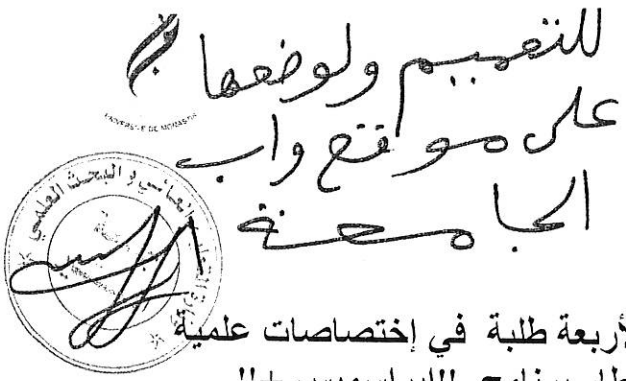 للتعميم ولوضعها
على موقع واب
الجامعة
UNIVERSITE DE MONASTIR
العالي والبحث العلمي
لأربعة طلبة في إختصاصات علمية
برنامج